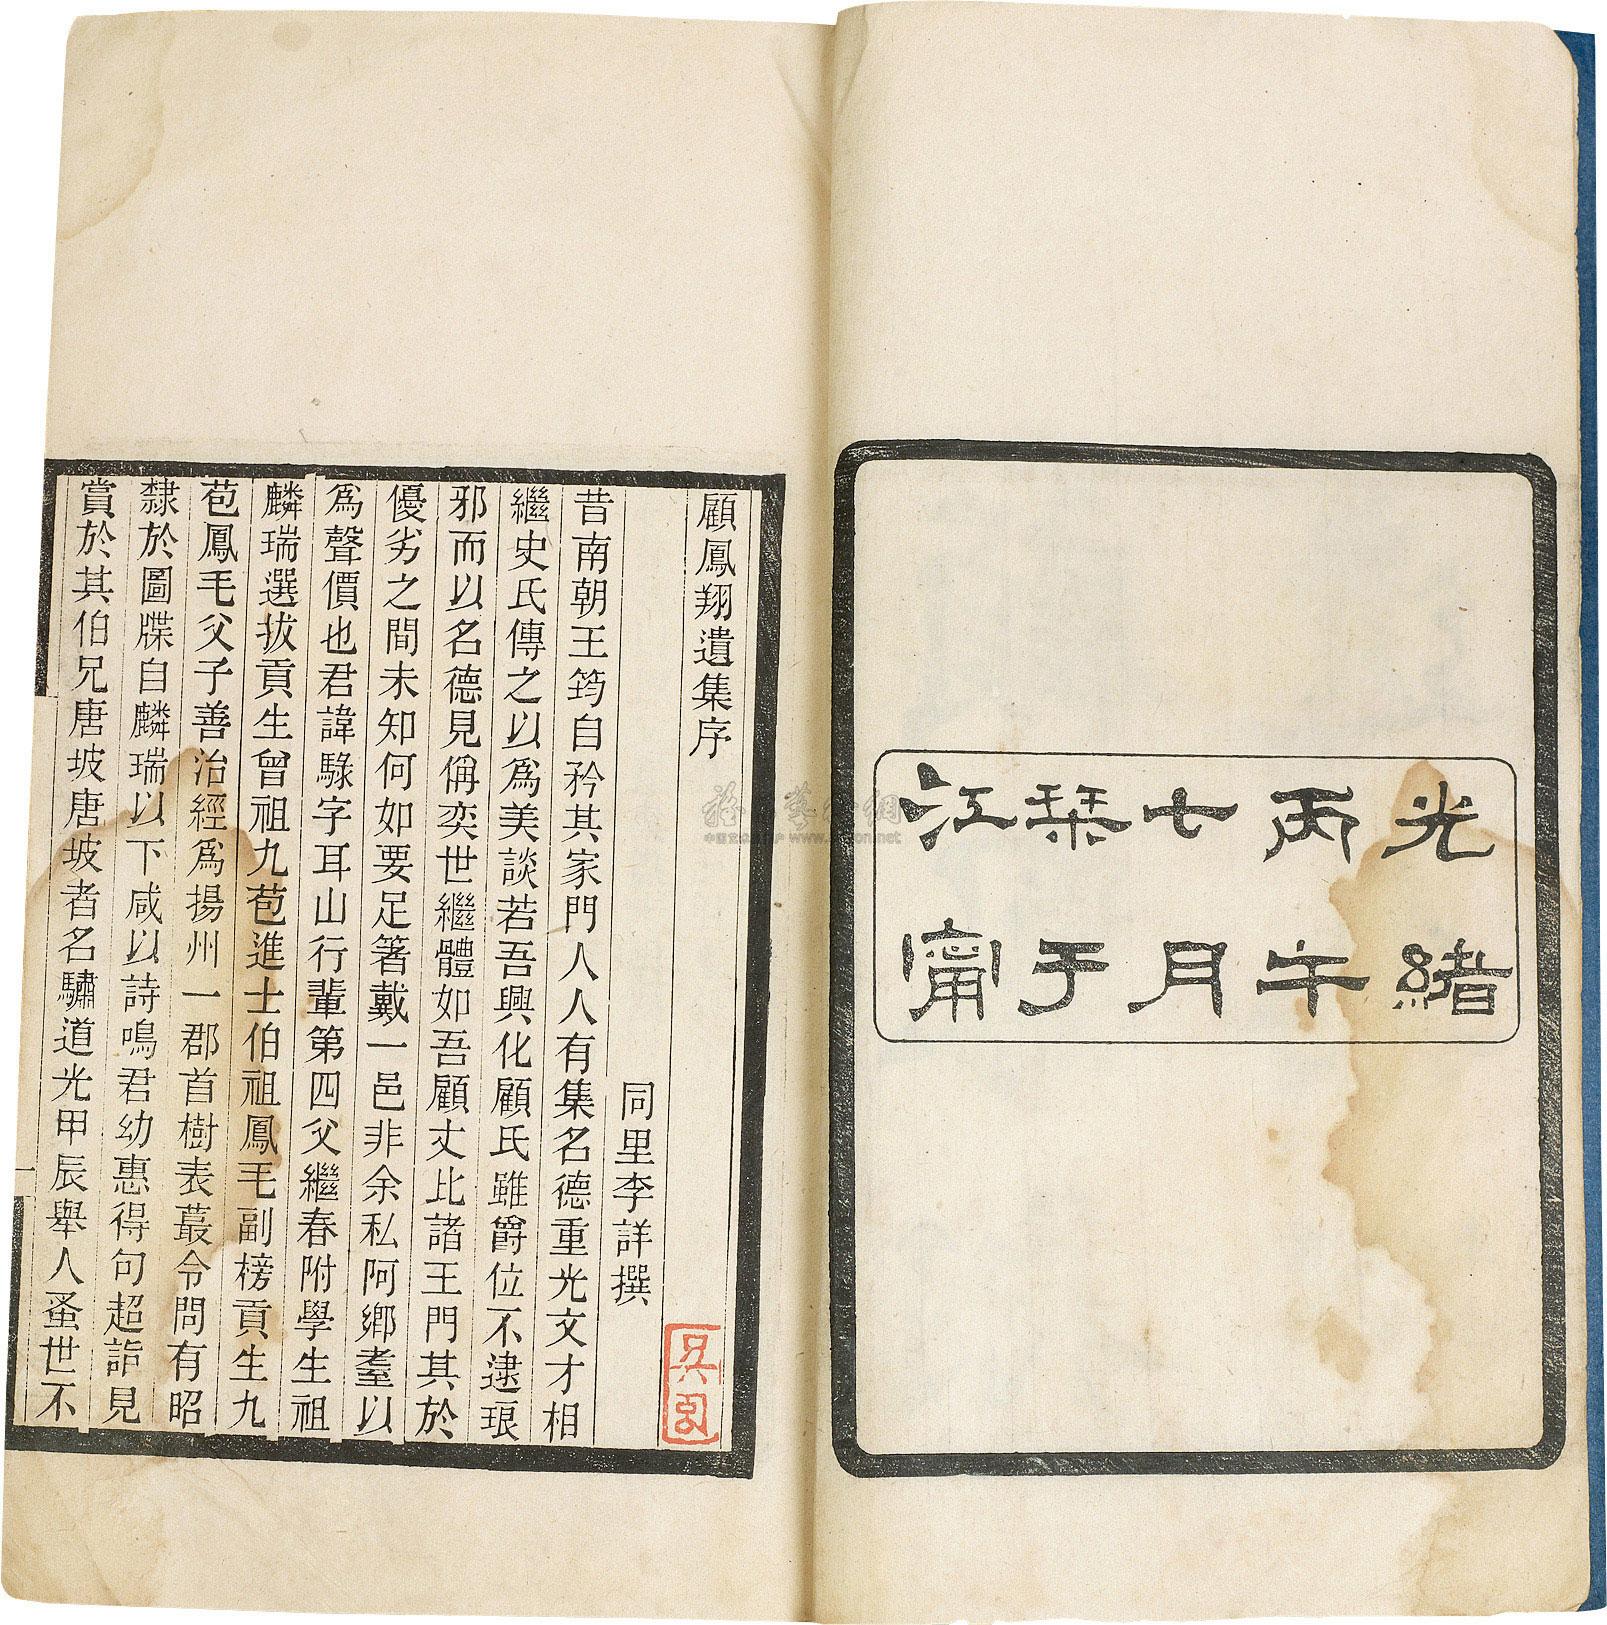 光緒
丙午
七月
栞于
江甯
顧鳳翔遺集序
同里李詳撰
昔南朝王筠自矜其家門人人有集名德重光文才相
繼史氏傳之以爲美談若吾興化顧氏雖爵位不逮琅
邪而以名德見偁奕世繼體如吾顧丈比諸王門其於
優劣之間未知何如要足箸戴一邑非余私阿鄉耋以
爲聲價也君諱騄字耳山行輩第四父繼春附學生祖
麟瑞選拔貢生曾祖九苞進士伯祖鳳毛副榜貢生九
苞鳳毛父子善治經爲揚州一郡首樹表蕞令問有昭
隸於圖牒自麟瑞以下咸以詩鳴君幼惠得句超詣見
賞於其伯兄唐坡唐坡者名驌道光甲辰舉人蚤世不
一
www.